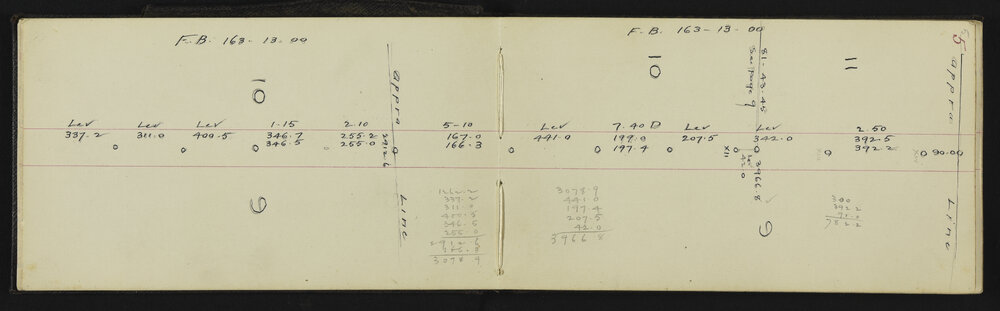 F.B. 163-13-00
10
Appro Line
Lev Lev Lev 1-15 2-10 5-10
337.2 311.0 400.5 346.7 255.2 167.0
346.5 255.0 166.3
2912.6
9
337.2
311.0
400.5
346.5
255.0
2912.6
3078.9
F.B. 163-13-00
5
10
81-43-45
See page 9
11
Appro Line
Lev 7.40 D Lev Lev 2.50
441.0 199.0 207.5 342.0 392.5
197.4 392.2
XII
Lev
42.0
3966.8
90.00
9
3078.9
441.0
197.4
207.5
42.0
3966.8
300
392.2